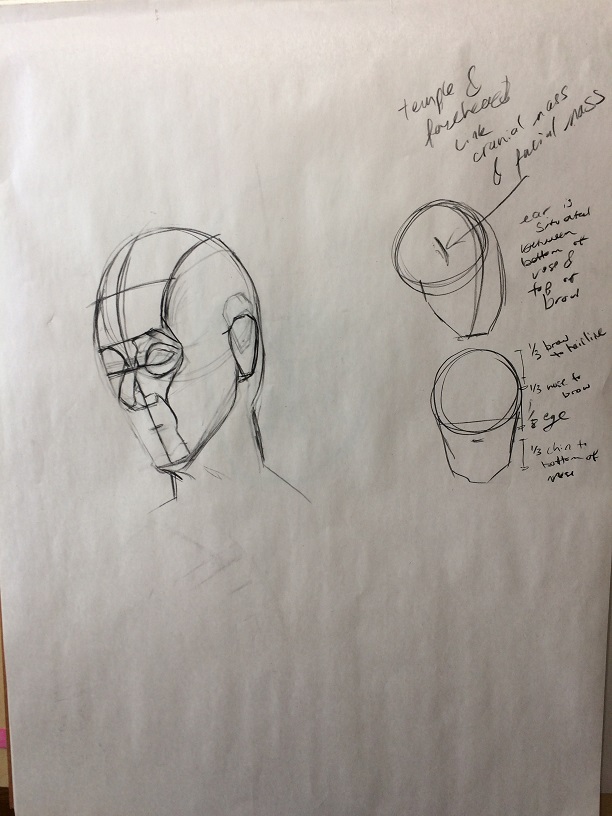 temple &
forehead
link
cranial mass
& facial mass
ear is
situated
between
bottom of
nose &
top of
brow
1/3 brow
to hairline
1/3 nose to
brow
eye
1/3 chin to
bottom of
nose